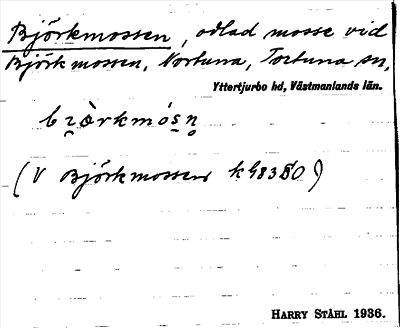 Björkmossen, odlad mosse vid
Björkmossen, Nortuna, Tortuna sn,
Yttertjurbo hd, Västmanlands län.
(V Björkmossen
HARRY STÅHL 1936.